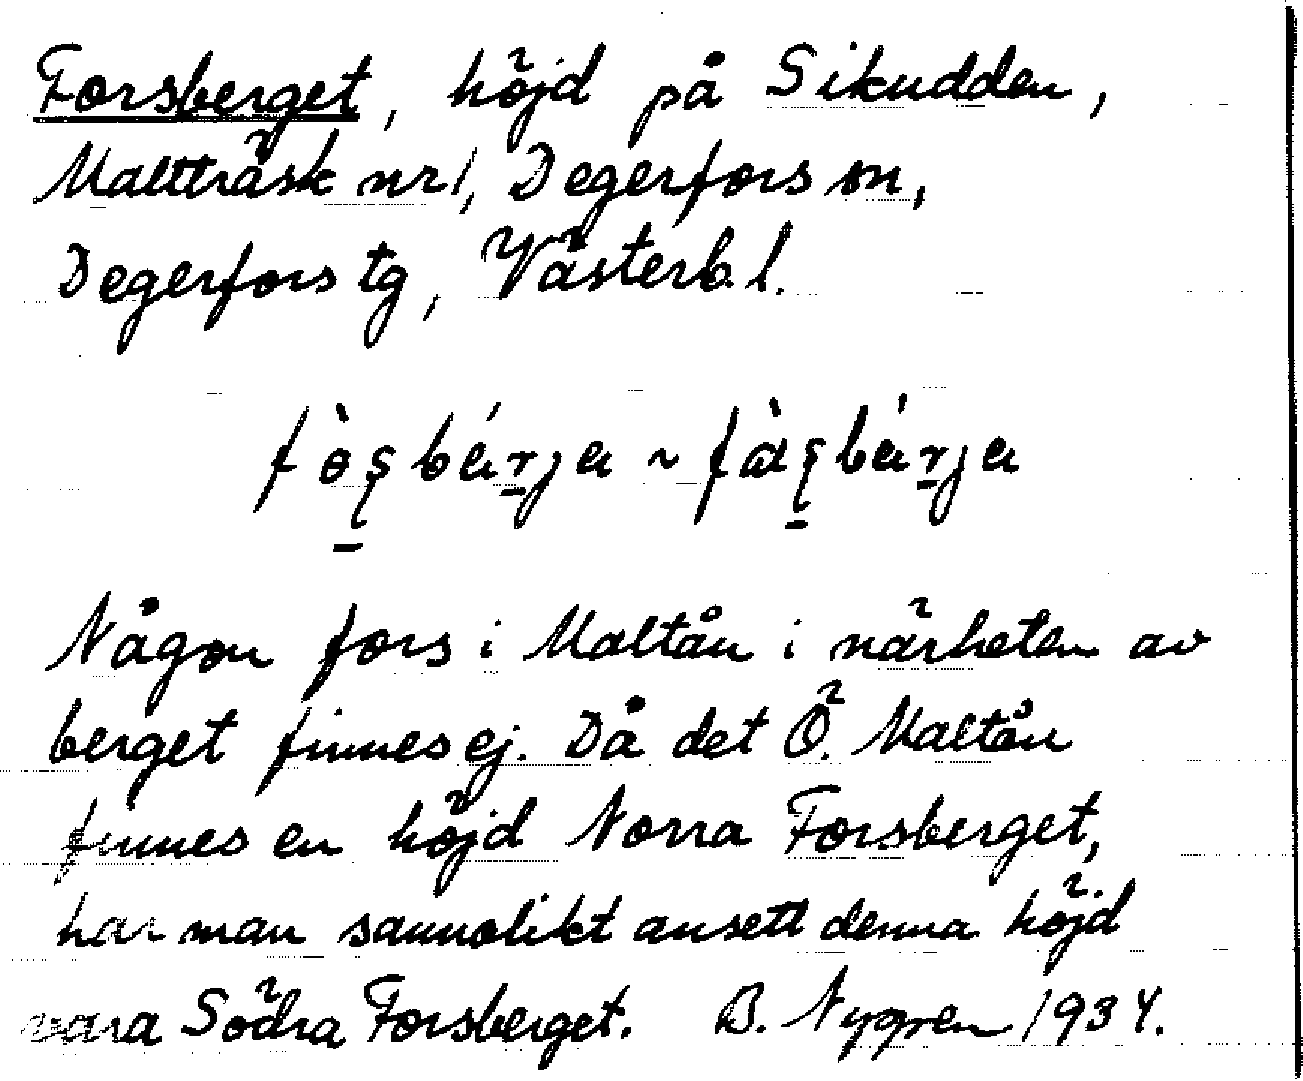 Forsberget, höjd på Sikudden,
Maltträsk nr 1, Degerfors sn,
Degerfors tg, Västerb. l.
Någon fors i Maltån i närheten av
berget finnes ej. Då det Ö. Maltån
finnes en höjd Norra Forsberget,
har man sannolikt ansett denna höjd
vara Södra Forsberget. B. Nygren 1934.